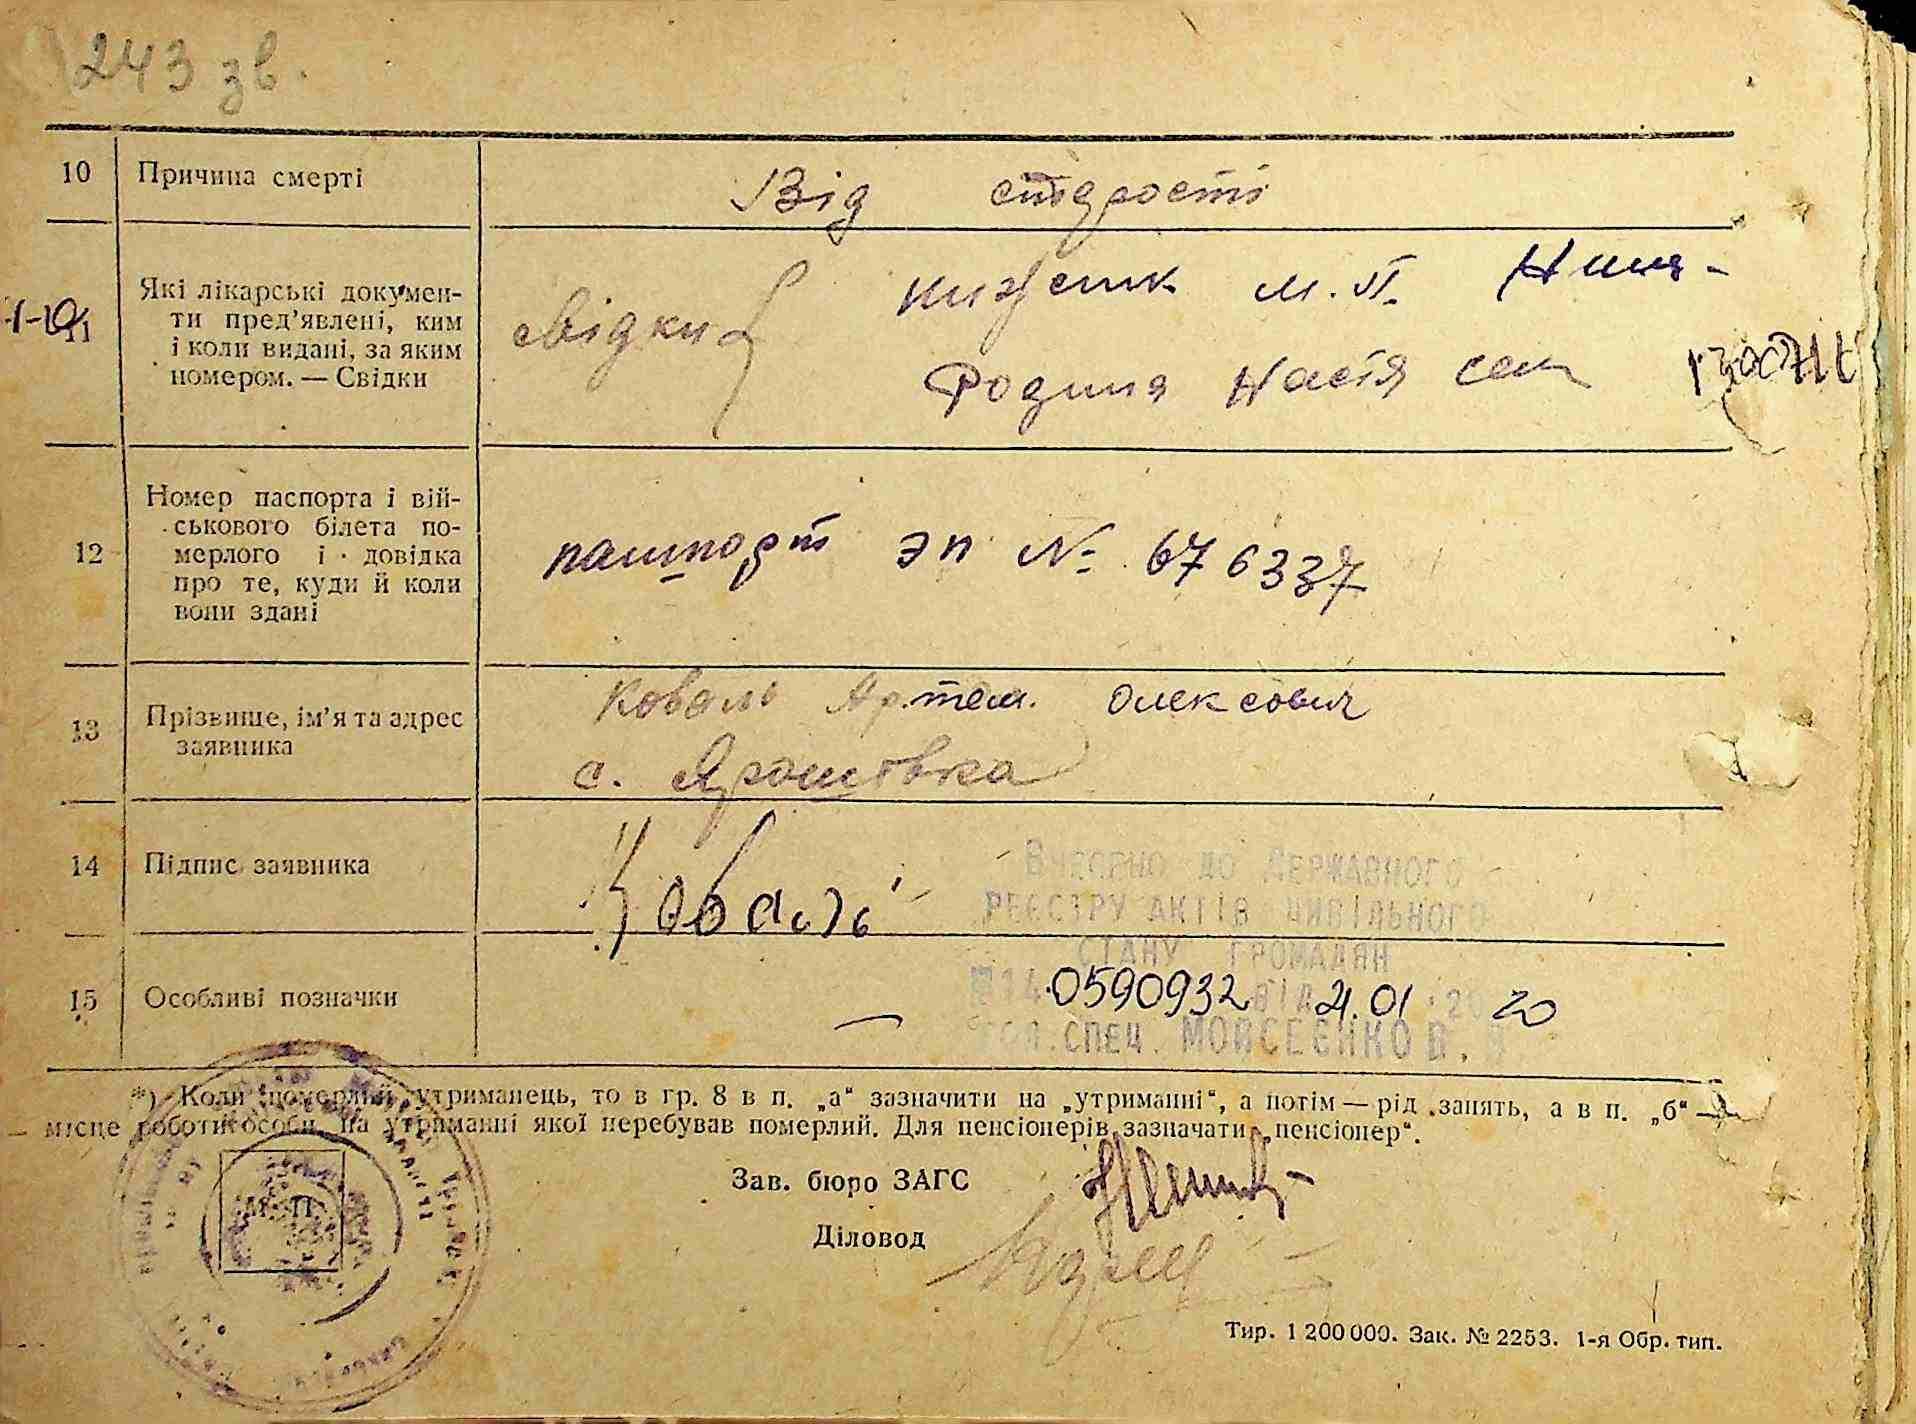 243 зв.
10 Причина смерті Від старості
11 Які лікарські докумен-
ти пред'явлені, ким
і коли видані, за яким
номером. — Свідки
свідки М. П.
Родина Настя
12 Номер паспорта і вій-
ськового білета по-
мерлого і довідка
про те, куди й коли
вони здані
пашпорт ЭП № 676337
13 Прізвище, ім'я та адрес
заявника
Коваль Артем. Олексович
с. Ярошівка
14 Підпис заявника Коваль
Внесено до Державного
реєстру актів цивільного
стану громадян
0590932 від 21.01.2020
гол. спец. Мойсеєнко В. В
15 Особливі позначки —
*) Коли померлий утриманець, то в гр. 8 в п. „а“ зазначити на „утриманні“, а потім — рід занять, а в п. „б“ —
— місце роботи особи, на утриманні якої перебував померлий. Для пенсіонерів зазначати „пенсіонер“.
М. П.
Зав. бюро ЗАГС
Діловод
Тир. 1 200 000. Зак. № 2253. 1-я Обр. тип.